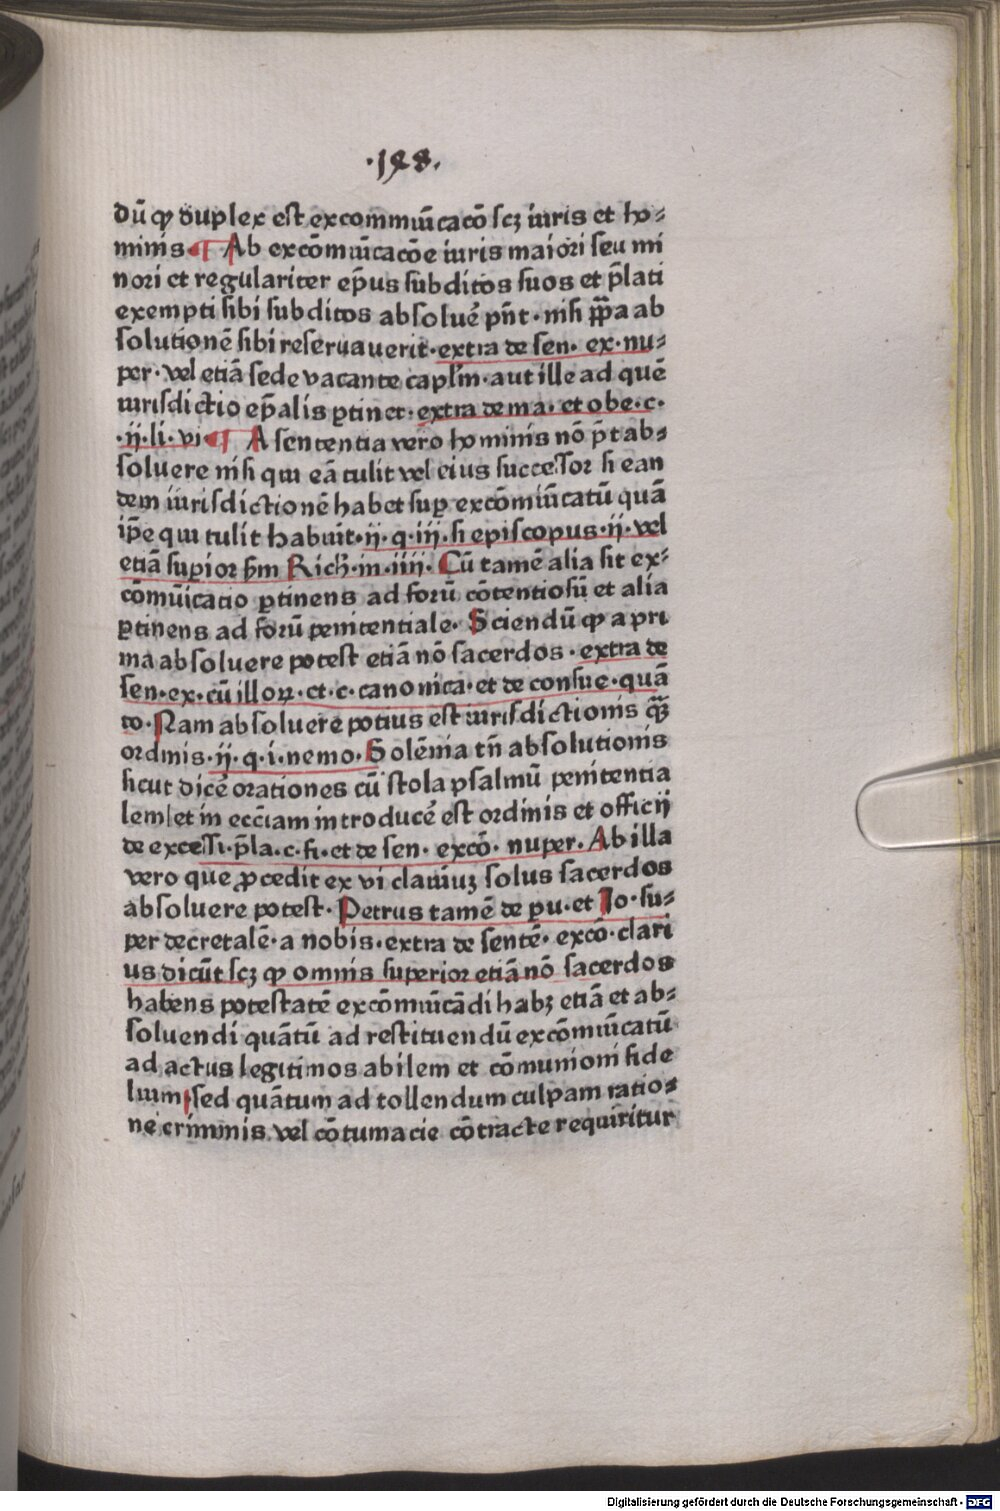 ·198.
dū ꝙ duplex est excommūicacō scꝫ iuris et ho⸗
minis ¶ Ab excōmūicacōe iuris maiori seu mi
nori et regulariter ep̄us subditos suos et p̄lati
exempti sibi subditos absoluē pn̄t · nisi pp̄a ab
solutionē sibi reseruauerit · extra de sen· ex· nu⸗
per · vel etiā sede vacante capl̄m · aut ille ad quē
iurisdictio ep̄alis ꝑtinet · extra de ma· et obe· c·
·ij·li·vi ¶ A sententia vero hominis nō p̄t ab⸗
soluere nisi qui eā tulit vel eius successor si ean
dem iurisdictionē habet suꝑ excōmūicatū quā
ip̄e qui tulit habuit̄·ij·q·iij·si episcopus·ij·vel
etiā suꝑior ẜm Rich̄·in·iiij· Cū tamē alia sit ex⸗
cōmūicatio ꝑtinens ad forū cōtentiosū et alia
ꝑtinens ad forū penitentiale· Sciendū ꝙ a pri
ma absoluere potest etiā nō sacerdos · extra de
sen·ex·cū illoꝝ·et·c·canonica·et de consue·quā
to· Nam absoluere potius est iurisdictionis qȝ̄
ordinis·ij·q·i·nemo· Solēnia tn̄ absolutionis
sicut dicē orationes cū stola psalmū penitentia
lem et in ecc̄iam introducē est ordinis et officij
de excessi·p̄la·c·fi·et de sen· excō· nuper· Ab illa
vero que ꝓcedit ex vi clauiuꝫ solus sacerdos
absoluere potest· Petrus tamē de pu·et Jo·su⸗
per decretalē·a nobis·extra de sentē·excō·clari
us dicūt scꝫ ꝙ omnis superior etiā nō sacerdos
habens potestatē excōmūicādi habꝫ etiā et ab⸗
soluendi quātū ad restituendū excōmūicatū
ad actus legitimos abilem et cōmunioni fide
lium sed quātum ad tollendum culpam ratio⸗
ne criminis vel cōtumacie cōtracte requiritur
Digitalisierung gefördert durch die Deutsche Forschungsgemeinschaft · DFG